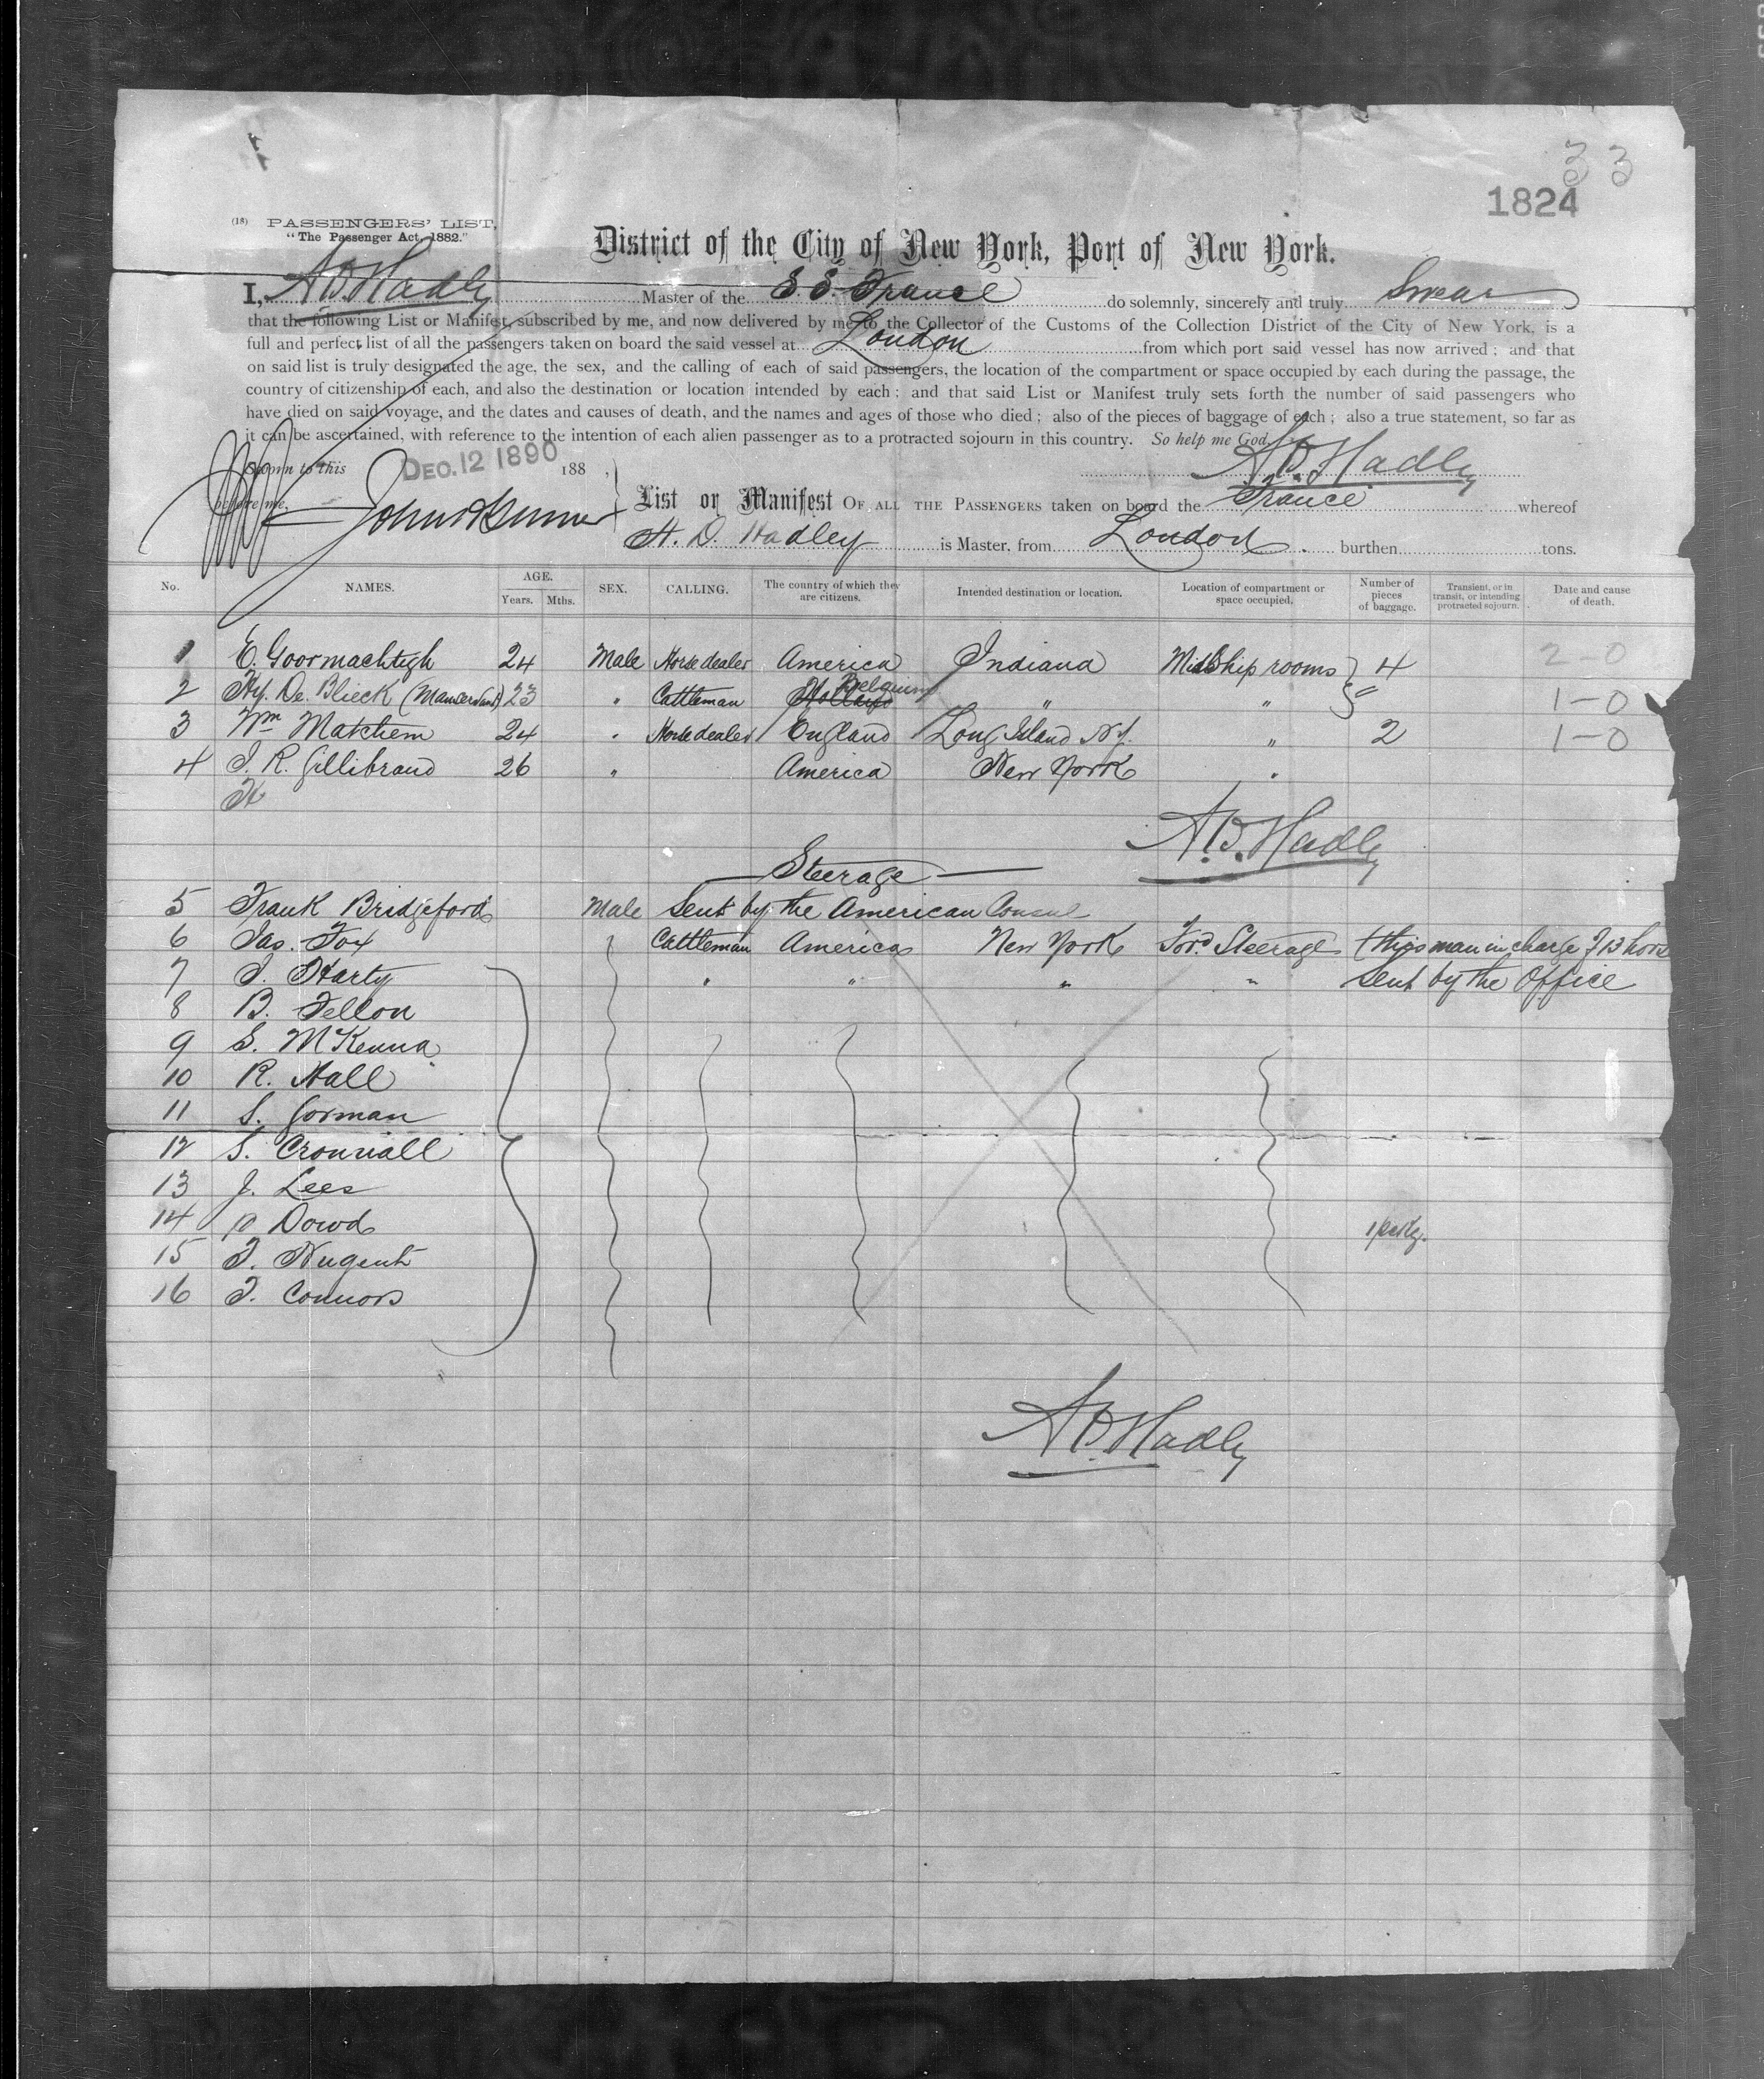 33
1824
(18) PASSENGERS' LIST,
"The Passenger Act, 1882."
District of the City of New York, Port of New York.
I, A D. Hadly Master of the S S. France do solemnly, sincerely and truly Swear
that the following List or Manifest, subscribed by me, and now delivered by me to the Collector of the Customs of the Collection District of the City of New York, is a
full and perfect list of all the passengers taken on board the said vessel at London from which port said vessel has now arrived; and that
on said list is truly designated the age, the sex, and the calling of each of said passengers, the location of the compartment or space occupied by each during the passage, the
country of citizenship of each, and also the destination or location intended by each; and that said List or Manifest truly sets forth the number of said passengers who
have died on said voyage, and the dates and causes of death, and the names and ages of those who died; also of the pieces of baggage of each; also a true statement, so far as
it can be ascertained, with reference to the intention of each alien passenger as to a protracted sojourn in this country. So help me God.
Sworn to this DEC. 12 1890 188 A D. Hadly
before me, List or Manifest OF ALL THE PASSENGERS taken on board the France whereof
H. D. Hadley is Master, from London. burthen tons.
No. NAMES. AGE. Years. Mths. SEX. CALLING. The country of which they are citizens. Intended destination or location. Location of compartment or space occupied. Number of pieces of baggage. Transient, or in transit, or intending protracted sojourn. Date and cause of death.
1 E. Goormachtigh 24 Male Horse dealer America Indiana MidShip rooms 4 2-0
2 Hy. De. Blieck (Manservant) 23 " Cattleman Holland Belgium " " " 1-0
3 Wm Matchem 24 " Horse dealer England Long Island N.Y. " 2 1-0
4 J. R. Gillibrand 26 " America New York "
H
A.D. Hadly
Steerage
5 Frank Bridgefords Male Sent by the American Consul
6 Jas. Fox Cattleman America New York Ford. Steerage (this man in charge of 13 hors
7 J. Harty " " " " sent by the Office
8 B. Fellon
9 S. McKenna
10 R. Hall
11 S. Gorman
12 S. Cronnall
13 J. Lees
14 P Dowd
15 T. Nugent
16 T. Connors
A D. Hadly